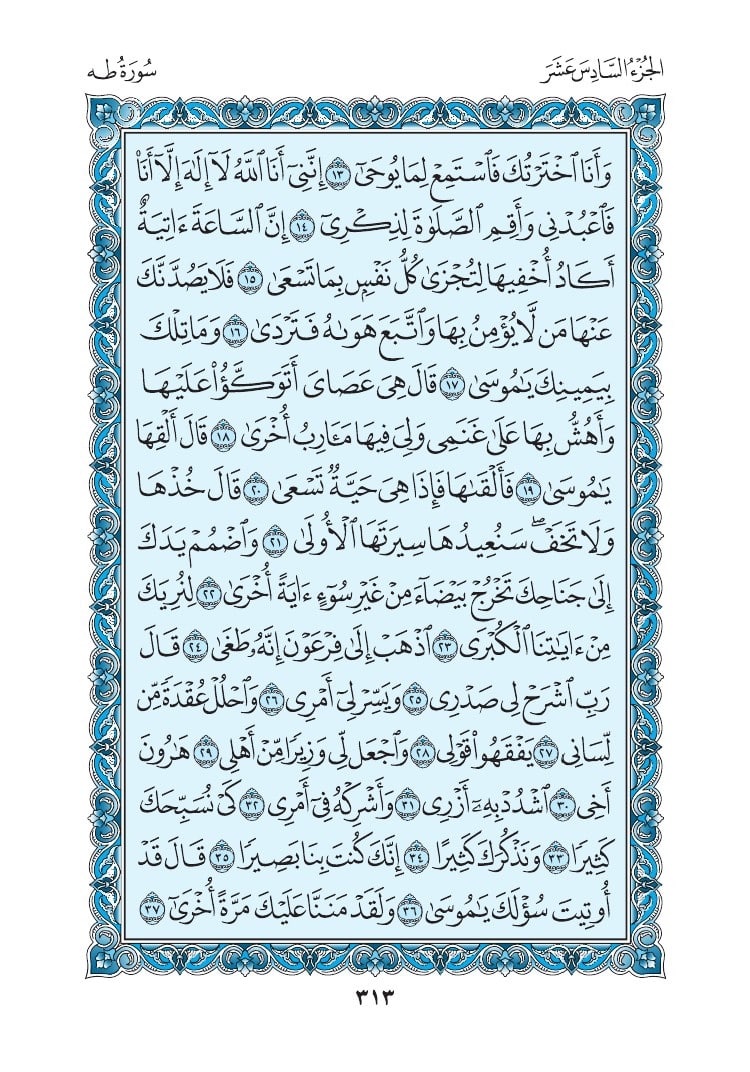 الجزء السادس عشر
سورة طه
وَأَنَا ٱخۡتَرۡتُكَ فَٱسۡتَمِعۡ لِمَا يُوحَىٰٓ ١٣ إِنَّنِيٓ أَنَا ٱللَّهُ لَآ إِلَٰهَ إِلَّآ أَنَا۠
فَٱعۡبُدۡنِي وَأَقِمِ ٱلصَّلَوٰةَ لِذِكۡرِيٓ ١٤ إِنَّ ٱلسَّاعَةَ ءَاتِيَةٌ
أَكَادُ أُخۡفِيهَا لِتُجۡزَىٰ كُلُّ نَفۡسِۭ بِمَا تَسۡعَىٰ ١٥ فَلَا يَصُدَّنَّكَ
عَنۡهَا مَن لَّا يُؤۡمِنُ بِهَا وَٱتَّبَعَ هَوَىٰهُ فَتَرۡدَىٰ ١٦ وَمَا تِلۡكَ
بِيَمِينِكَ يَٰمُوسَىٰ ١٧ قَالَ هِيَ عَصَايَ أَتَوَكَّؤُاْ عَلَيۡهَا
وَأَهُشُّ بِهَا عَلَىٰ غَنَمِي وَلِيَ فِيهَا مَـَٔارِبُ أُخۡرَىٰ ١٨ قَالَ أَلۡقِهَا
يَٰمُوسَىٰ ١٩ فَأَلۡقَىٰهَا فَإِذَا هِيَ حَيَّةٞ تَسۡعَىٰ ٢٠ قَالَ خُذۡهَا
وَلَا تَخَفۡۖ سَنُعِيدُهَا سِيرَتَهَا ٱلۡأُولَىٰ ٢١ وَٱضۡمُمۡ يَدَكَ
إِلَىٰ جَنَاحِكَ تَخۡرُجۡ بَيۡضَآءَ مِنۡ غَيۡرِ سُوٓءٍ ءَايَةً أُخۡرَىٰ ٢٢ لِنُرِيَكَ
مِنۡ ءَايَٰتِنَا ٱلۡكُبۡرَى ٢٣ ٱذۡهَبۡ إِلَىٰ فِرۡعَوۡنَ إِنَّهُۥ طَغَىٰ ٢٤ قَالَ
رَبِّ ٱشۡرَحۡ لِي صَدۡرِي ٢٥ وَيَسِّرۡ لِيٓ أَمۡرِي ٢٦ وَٱحۡلُلۡ عُقۡدَةٗ مِّن
لِّسَانِي ٢٧ يَفۡقَهُواْ قَوۡلِي ٢٨ وَٱجۡعَل لِّي وَزِيرٗا مِّنۡ أَهۡلِي ٢٩ هَٰرُونَ
أَخِي ٣٠ ٱشۡدُدۡ بِهِۦٓ أَزۡرِي ٣١ وَأَشۡرِكۡهُ فِيٓ أَمۡرِي ٣٢ كَيۡ نُسَبِّحَكَ
كَثِيرٗا ٣٣ وَنَذۡكُرَكَ كَثِيرًا ٣٤ إِنَّكَ كُنتَ بِنَا بَصِيرٗا ٣٥ قَالَ قَدۡ
أُوتِيتَ سُؤۡلَكَ يَٰمُوسَىٰ ٣٦ وَلَقَدۡ مَنَنَّا عَلَيۡكَ مَرَّةً أُخۡرَىٰٓ ٣٧
٣١٣